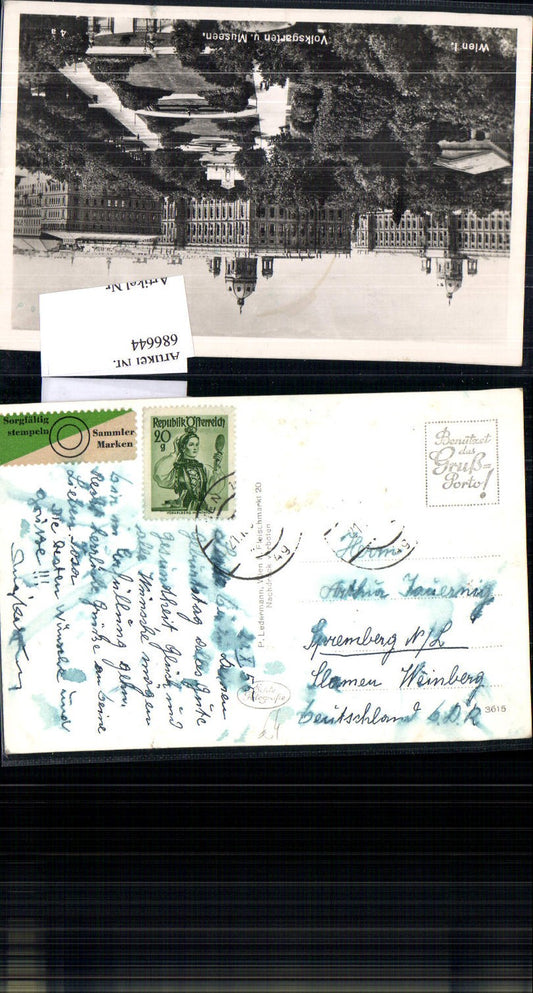 Wien I.
Volksgarten u. Museen.
4 a
Artikel Nr.
686644
Artikel Nr.
Sorgfältig
stempeln
Sammler
Marken
Republik Österreich
20
g
Benützet
das
Gruß=
Porto!
P. Ledermann, Wien I, Fleischmarkt 20
Nachdruck verboten
3615
Herrn
Arthur
Spremberg N/L
Slamen Weinberg
Deutschland D.D.R
Geburtstag alles Gute
Gesundheit Glück und
alle Wünsche mögen
in Erfüllung gehn
Recht herzliche Grüße an Deine
Lieben
Die besten Wünsche und
Grüsse !!!